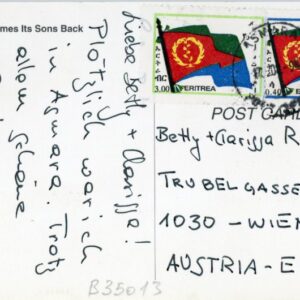 mes Its Sons Back
Liebe Betty + Clarissa!
Plötzlich war ich
in Asmara. Trotz
allem schöne
3.00
ERITREA
0.40
POST CAR
Betty + Clarissa R
TRUBELGASSE
1030 - WIEN
AUSTRIA - E
B35013